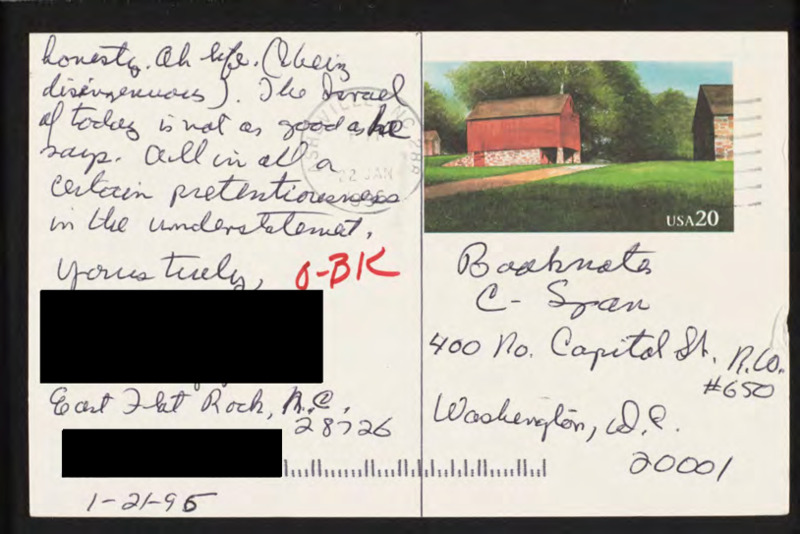 honesty. Oh life. (Albeiz
disingenuous). The Israel
of today is not as good as he
says. All in all a
certain pretentiousness
in the understatemet.
Yours truly,
O-BK
East Flat Rock, N.C.
28726
1-21-95
ASHEVILLE, NC 288
22 JAN
USA20
Booknotes
C-Span
400 No. Capitol St. N.W.
#650
Washington, D.C.
20001